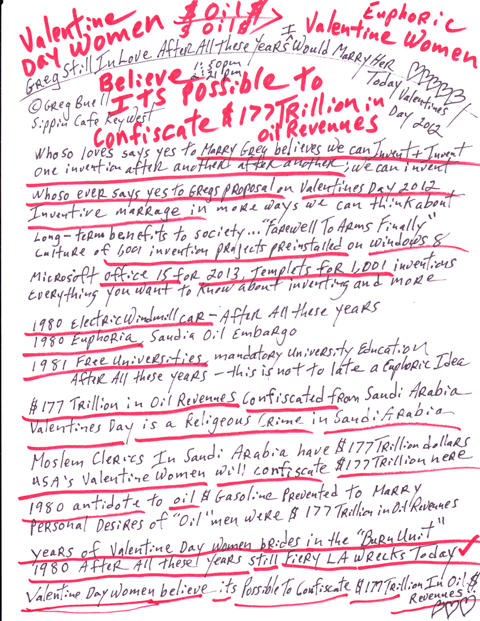 Valentine Day Women
$ Oil $
$ Oil $
Euphoric Valentine Women
Greg Still In Love After All these Years I Would Marry Her Today Valentines Day 2012
1:50pm
2:21pm
© Greg Buell
Sippin Cafe Key West
Believe Its Possible to Confiscate $177 Trillion in oil Revenues
Whoso loves says yes to Marry Greg believes we can Invent + Invent
one invention after another after another; we can invent
Whoso ever says yes to Gregs proposal on Valentines Day 2012
Inventive marrage in more ways we can think about
Long-term benefits to society... "Farewell To Arms Finally"
Culture of 1,001 invention projects preinstalled on windows 8
Microsoft office 15 for 2013, Templets for 1,001 inventions
Everything you want to Know about inventing and more
1980 Electric Windmill car - After All these years
1980 Euphoria, Saudia Oil Embargo
1981 Free Universities mandatory University Education
After All these years - this is not to late a Euphoric Idea
$177 Trillion in Oil Revenues Confiscated from Saudi Arabia
Valentines Day is a Religeous Crime in Saudi Arabia
Moslem Clerics In Saudi Arabia have $177 Trillion dollars
USA's Valentine Women will confiscate $177 Trillion here
1980 antidote to oil $ Gasoline Prevented to Marry
Personal Desires of "Oil" men were $177 Trillion in Oil Revenues
years of Valentine Day Women brides in the "Burn Unit"
1980 After All these! years still Fiery LA wrecks Today ✓
Valentine Day Women believe its Possible To Confiscate $177 Trillion In Oil $
Revenues!